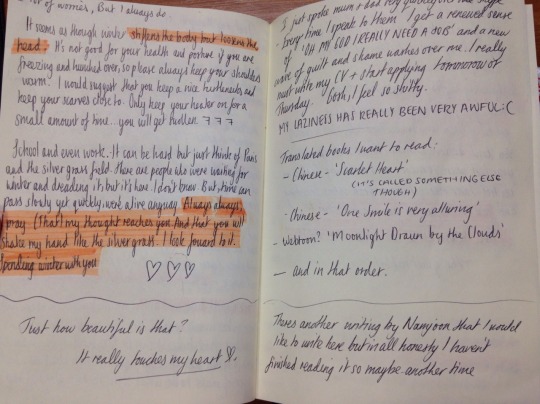 lot of worries, But I always do.
It seems as though winter stiffens the body but loosens the
head. It's not good for your health and posture if you are
freezing and hunched over, so please always keep your shoulders
warm. I would suggest that you keep a nice turtleneck and
keep your scarves close to. Only keep your heater on for a
small amount of time... you will get swollen. ㅋㅋㅋ
School and even work. It can be hard but just think of Paris
and the silver grass field. There are people who were waiting for
winter and dreading it, but it's here. I don't know. But, time can
pass slowly yet quickly, we're alive anyway. Always always
pray (that my thought reaches you. And that you will
shake my hand like the silver grass. I look forward to it.
Spending winter with you.
♡ ♡ ♡
Just how beautiful is that?
It really touches my heart ♡.
I just spoke mum + dad very quickly over the
Every time I speak to them I get a renewed sense
of 'OH MY GOD I REALLY NEED A JOB' and a new
wave of guilt and shame washes over me. I really
must with my CV + start applying tomorrow or
Thursday. Gosh, I feel so stuffy.
MY LAZINESS HAS REALLY BEEN VERY AWFUL :(
Translated books I want to read:
- Chinese - 'Scarlet Heart'
(IT'S CALLED SOMETHING ELSE
THOUGH)
- Chinese - 'One Smile is very alluring'
- Webtoon? 'Moonlight Drawn by the Clouds'
— and in that order.
Theres another writing by Namjoon that I would
like to write here but in all honesty I haven't
finished reading it so maybe another time